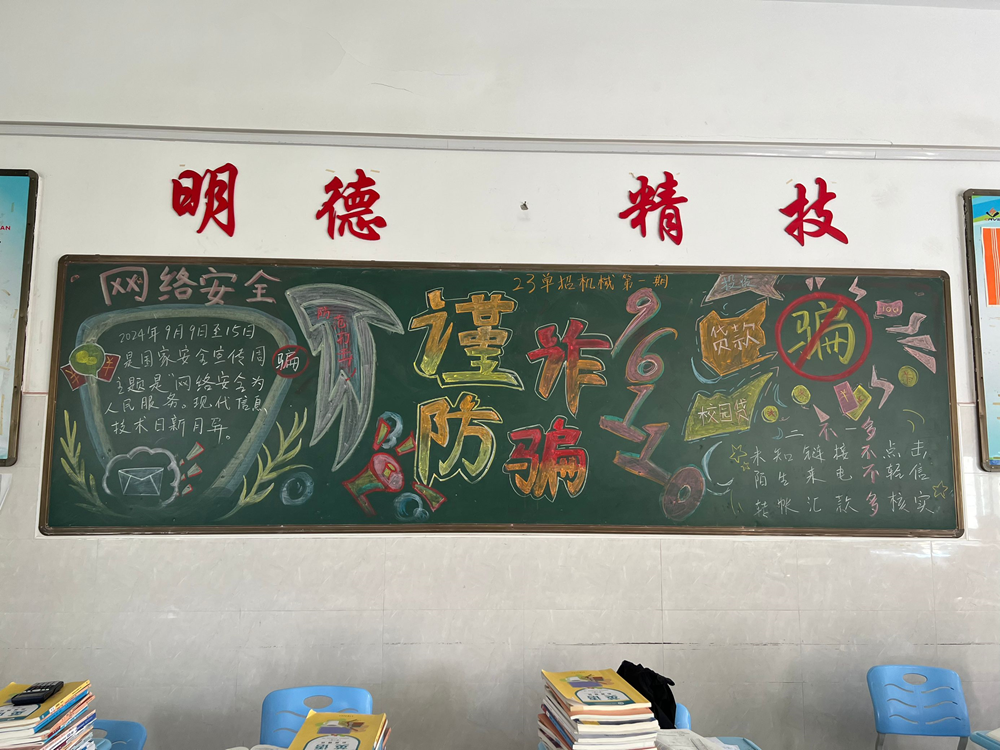 明德 精技
23单招机械第一期
网络安全
2024年9月9日至15日
是国家安全宣传周
主题是“网络安全为
人民服务。现代信息
技术日新月异。
骗
谨防
诈骗
96110
贷款
校园贷
骗
100
二不一多
未知链接不点击
陌生来电不轻信
转帐汇款多核实